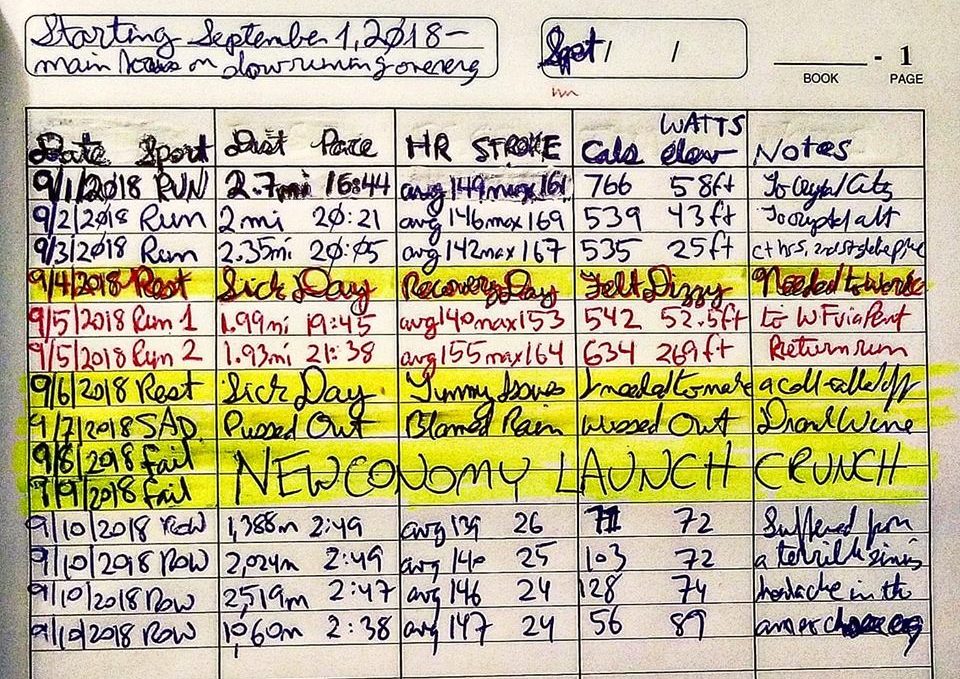 Starting September 1, 2018 –
main focus on slow running over
Sport / /
- 1
BOOK PAGE
WATTS
Date Sport Dist Pace HR STROKE Cals elev Notes
9/1/2018 RUN 2.7mi 16:44 avg 149 max 161 766 58ft To Crystal City
9/2/2018 Run 2 mi 20:21 avg 146 max 169 539 43ft To crystal alt
9/3/2018 Run 2.35mi 20:05 avg 142 max 167 535 25ft
9/4/2018 Rest Sick Day Recovery Day Felt Dizzy Needed to work
9/5/2018 Run 1 1.99mi 19:45 avg 140 max 153 542 52.5ft to WF via Pent
9/5/2018 Run 2 1.93mi 21:38 avg 155 max 164 634 269ft Return run
9/6/2018 Rest Sick Day Tummy Issues I needed to make a call
9/7/2018 SAD Pussed Out Blamed Rain wussed Out Drank Wine
9/8/2018 Fail NEWCONOMY LAUNCH CRUNCH
9/9/2018 Fail
9/10/2018 ROW 1,388m 2:49 avg 139 26 71 72 Suffered from
9/10/2018 ROW 2,024m 2:49 avg 140 25 103 72 a terrible sinus
9/10/2018 Row 2,519m 2:47 avg 146 24 128 74 headache in the
9/10/2018 ROW 1,060m 2:38 avg 147 24 56 89